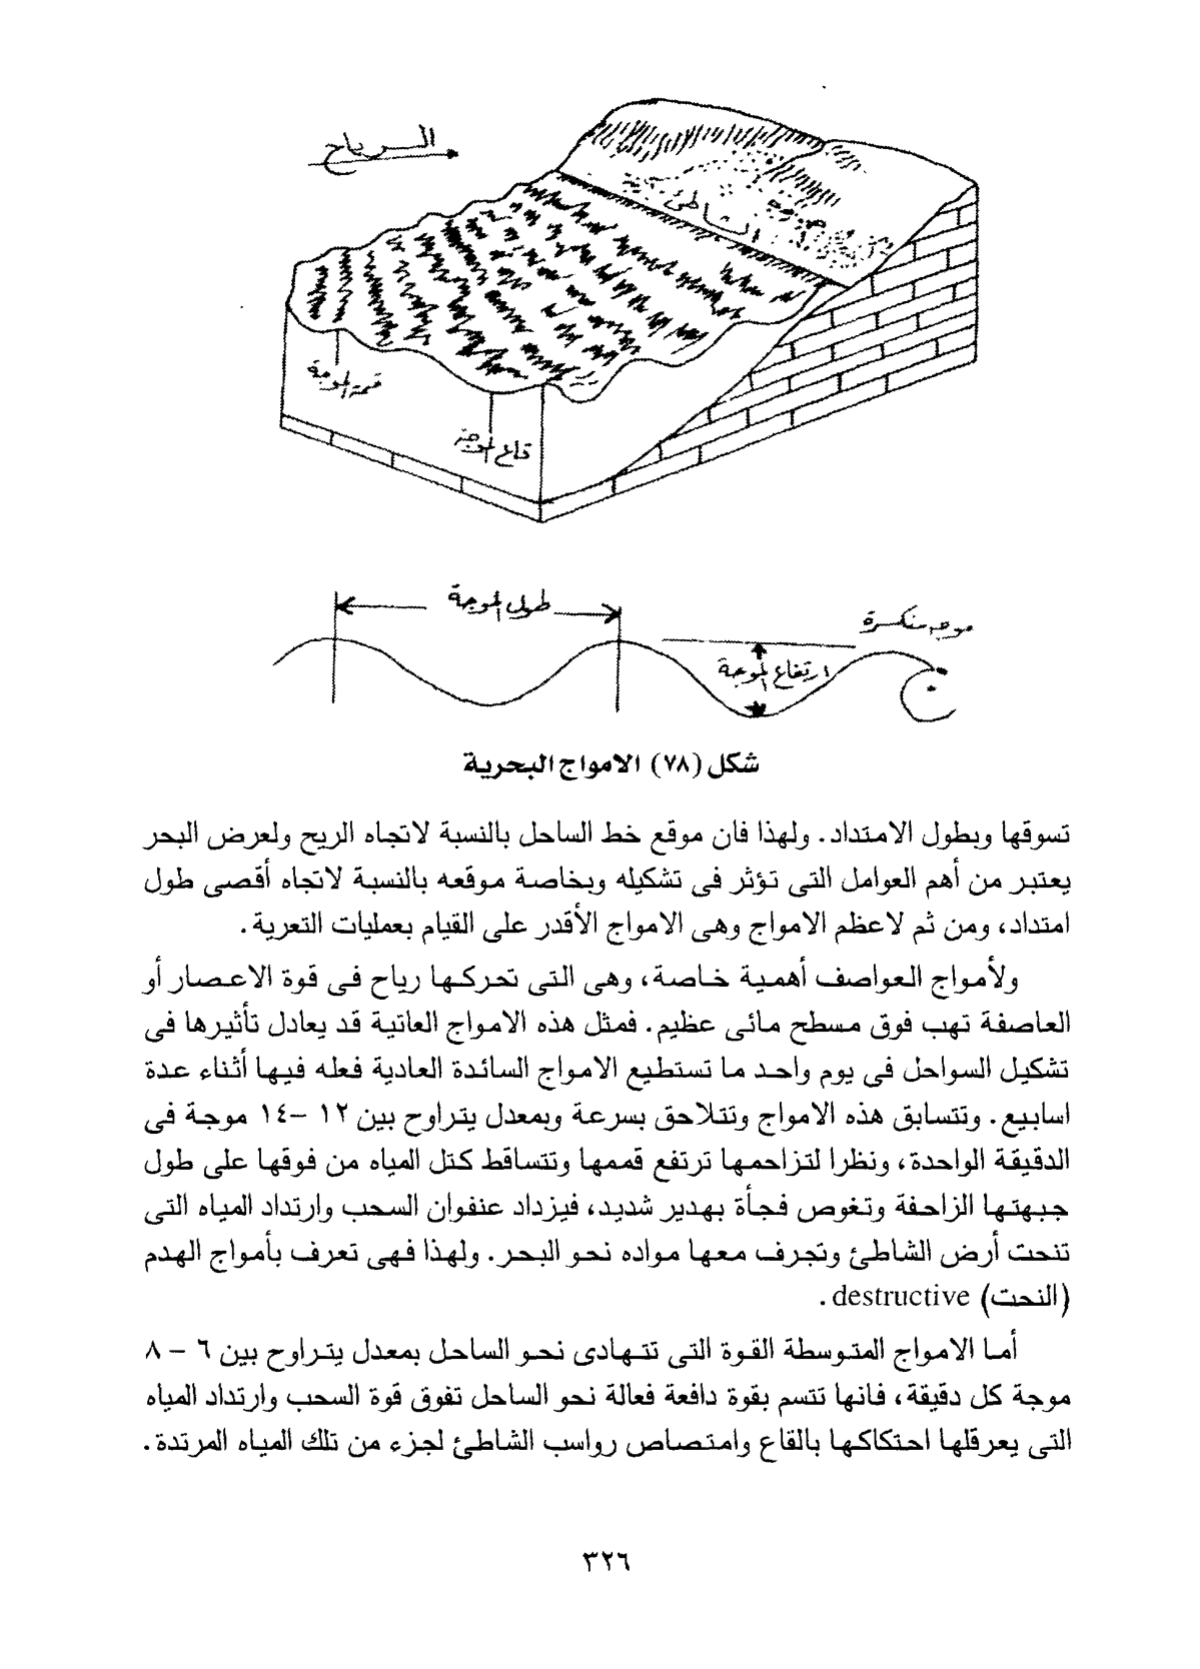 الرياح
الشاطئ
قمة الموجة
قاع الموجة
طول الموجة
موجه منكسرة
ارتفاع الموجة
شكل (٧٨) الامواج البحرية
تسوقها وبطول الامتداد. ولهذا فان موقع خط الساحل بالنسبة لاتجاه الريح ولعرض البحر
يعتبر من أهم العوامل التى تؤثر فى تشكيله وبخاصة موقعه بالنسبة لاتجاه أقصى طول
امتداد، ومن ثم لاعظم الامواج وهى الامواج الأقدر على القيام بعمليات التعرية.
ولأمواج العواصف أهمية خاصة، وهى التى تحركها رياح فى قوة الاعصار أو
العاصفة تهب فوق مسطح مائى عظيم. فمثل هذه الامواج العاتية قد يعادل تأثيرها فى
تشكيل السواحل فى يوم واحد ما تستطيع الامواج السائدة العادية فعله فيها أثناء عدة
اسابيع. وتتسابق هذه الامواج وتتلاحق بسرعة وبمعدل يتراوح بين ١٢ -١٤ موجة فى
الدقيقة الواحدة، ونظرا لتزاحمها ترتفع قممها وتتساقط كتل المياه من فوقها على طول
جبهتها الزاحفة وتغوص فجأة بهدير شديد، فيزداد عنفوان السحب وارتداد المياه التى
تنحت أرض الشاطئ وتجرف معها مواده نحو البحر. ولهذا فهى تعرف بأمواج الهدم
(النحت) destructive .
أما الامواج المتوسطة القوة التى تتهادى نحو الساحل بمعدل يتراوح بين ٦ - ٨
موجة كل دقيقة، فانها تتسم بقوة دافعة فعالة نحو الساحل تفوق قوة السحب وارتداد المياه
التى يعرقلها احتكاكها بالقاع وامتصاص رواسب الشاطئ لجزء من تلك المياه المرتدة.
٣٢٦